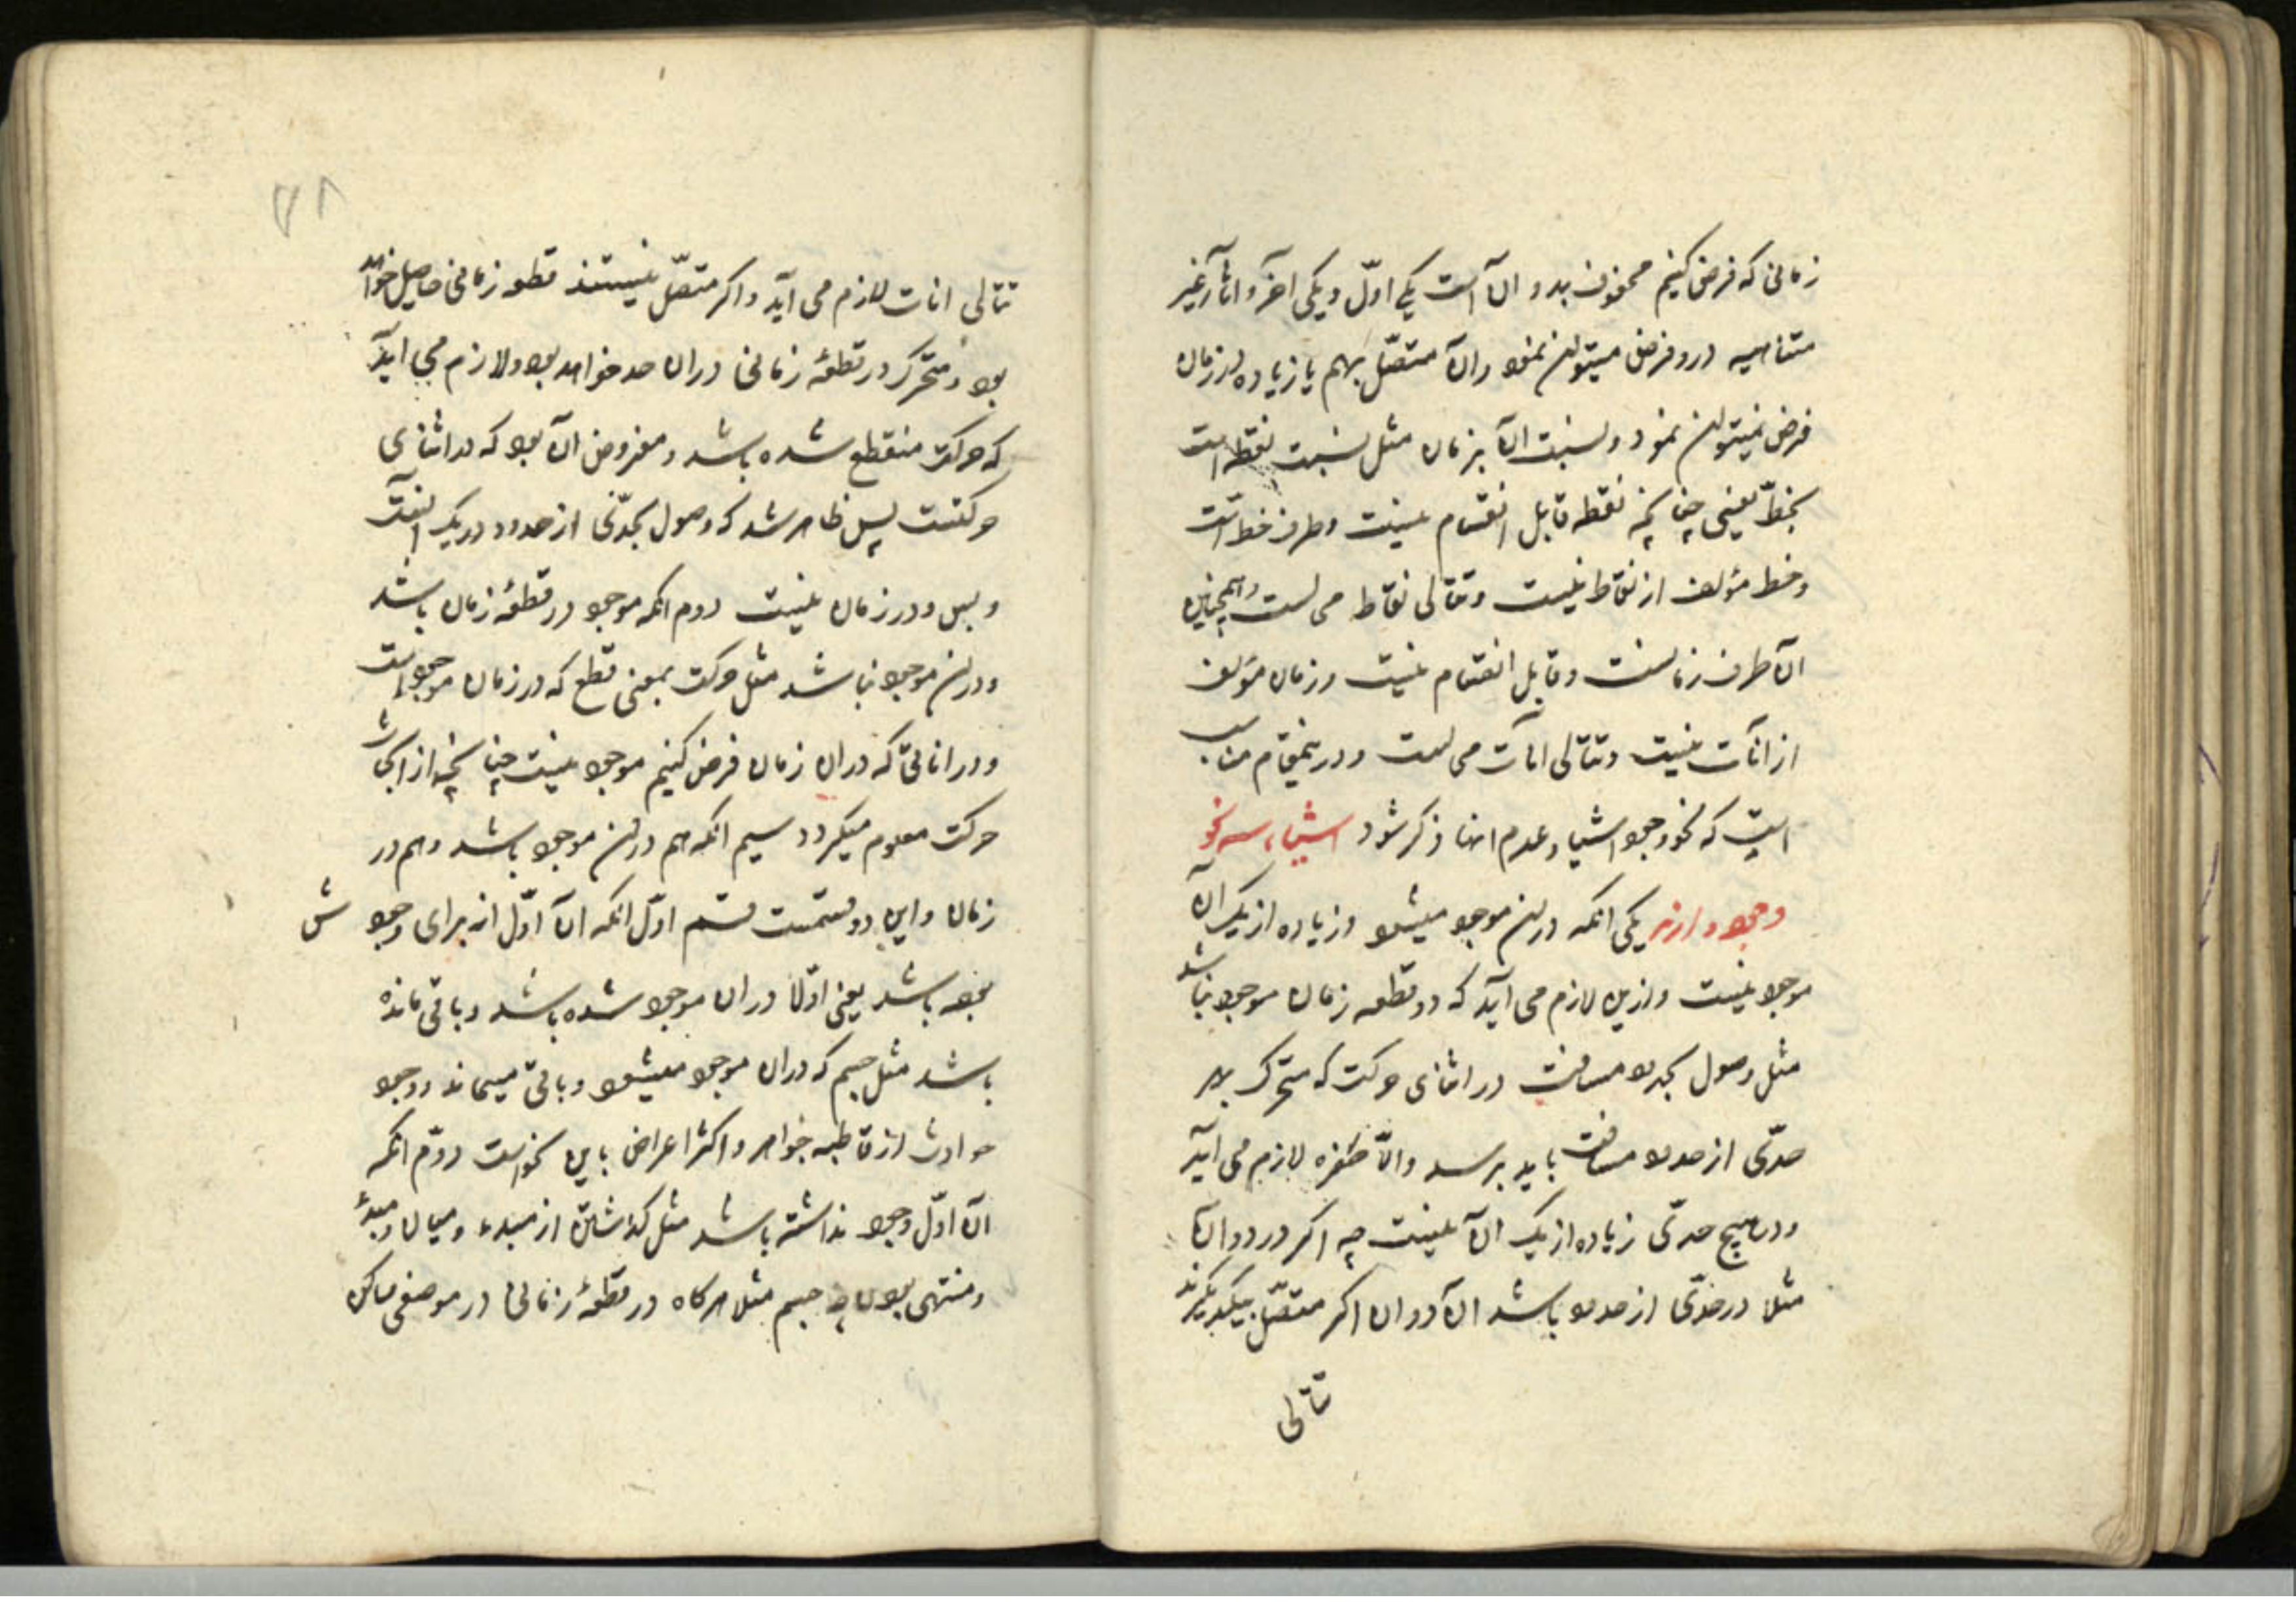 زمانی که فرض کنیم محفوف بدو آن است یکی اوّل و یکی آخر و انات غیر
متناهیه درو فرض میتوان نمود و آن متصّل بهم یا زیاده در زمان
فرض نمیتوان نمود و نسبت آن بزمان مثل نسبت نقطه است
بخطّ یعنی چنانچه نقطه قابل انقسام نیست و طرف خط است
و خط مؤلف از نقاط نیست و تتالی نقاط محالست و همچنین
آن طرف زمانست و قابل انقسام نیست و زمان مؤلف
از انات نیست و تتالی انات محالست و درینمقام مناسب
است که نحو وجود اشیا و عدم انها ذکر شود اشیاء سه نحو
وجود دارند یکی انکه در آن موجود میشود و زیاده از یک آن
موجود نیست و ازین لازم می آید که در قطعه زمان موجود نباشد
مثل وصول بحدود مسافت در اثنای حرکت که متحرک بهر
حدّی از حدود مسافت باید برسد و الّا طفره لازم می آید
و در هیچ حدّی زیاده از یک آن نیست چه اکر در دو آن
مثلا در حدّی از حدود باشد آن دو ان اکر متصّل بیکدیکرند
تتالی
تتالی انات لازم می آید و اکر متصّل نیستند قطعه زمانی حاصل خواهد
بود و متحرک در قطعهٔ زمانی در ان حد خواهد بود و لازم می اید
که حرکت منقطع شده باشد و مفروض آن بود که در اثنای
حرکتست پس ظاهر شد که وصول بحدّی از حدود در یک آنست
و بس و در زمان نیست دوم انکه موجود در قطعهٔ زمان باشد
و در آن موجود نباشد مثل حرکت بمعنی قطع که در زمان موجود است
و در اناتی که در ان زمان فرض کنیم موجود نیست چنانچه از ابحاث
حرکت معلوم میکردد سیم انکه هم در آن موجود باشد و هم در
زمان و این دو قسمست قسم اوّل انکه آن اوّل از برای وجودش
بوده باشد یعنی اوّلا در ان موجود شده باشد و باقی مانده
باشد مثل جسم که در ان موجود میشود و باقی میماند و وجود
حوادث از قاطبه جواهر و اکثر اعراض باین نحو است دوّم انکه
آن اوّل وجود نداشته باشد مثل کذشتن از مبدء و میان مبدء
و منتهی بودن جسم مثلا هرکاه در قطعهٔ زمانی در موضعی ساکن
۷۸